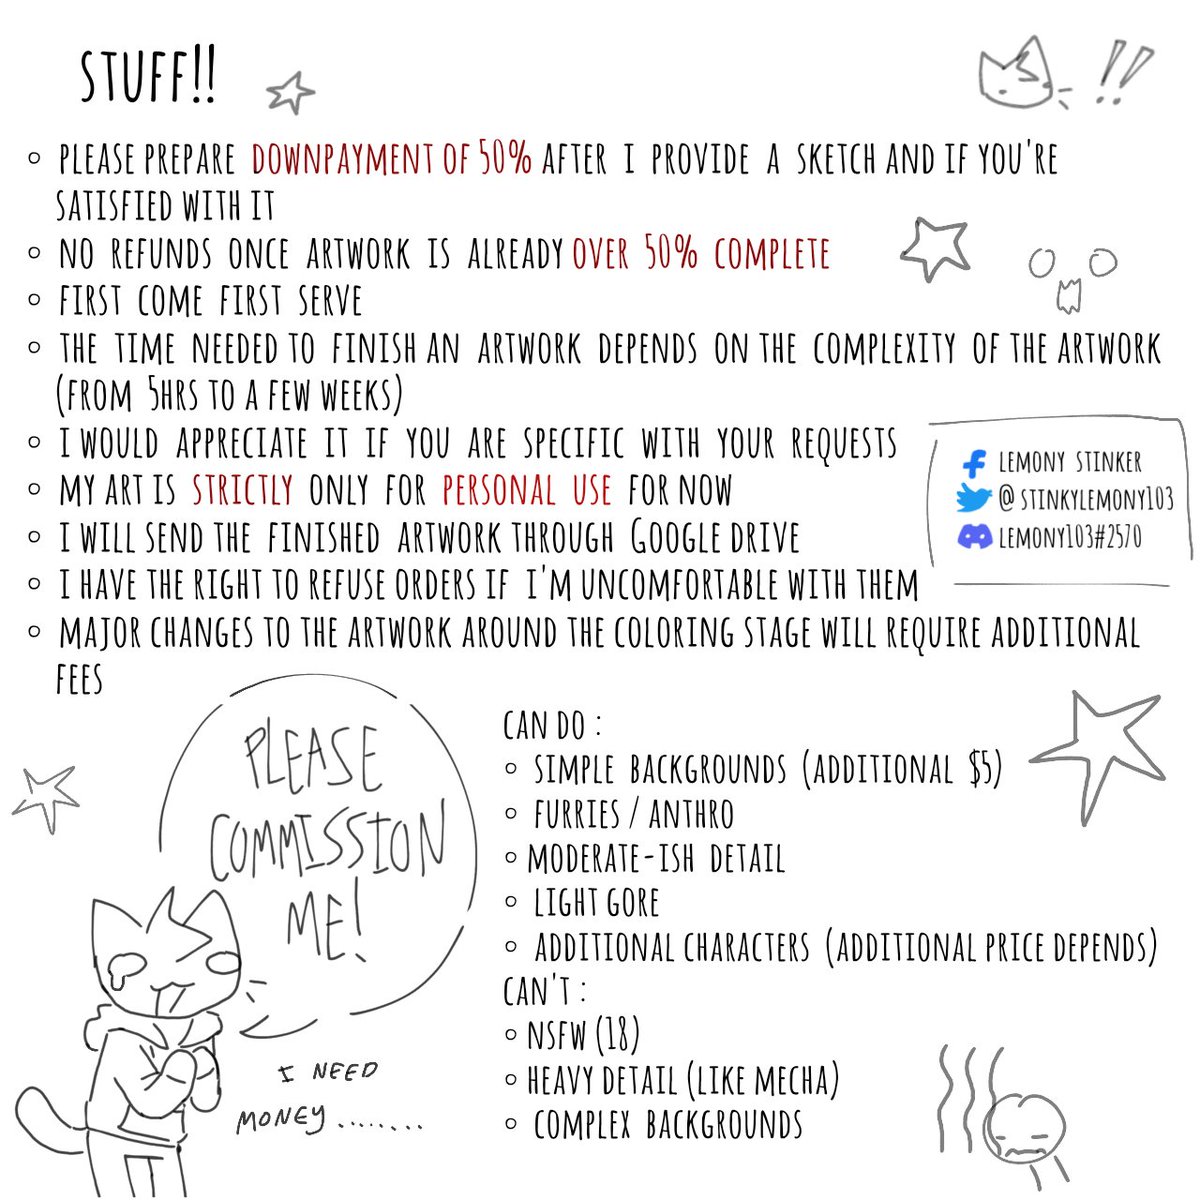 STUFF!!
!!
PLEASE PREPARE DOWNPAYMENT OF 50% AFTER I PROVIDE A SKETCH AND IF YOU'RE
SATISFIED WITH IT
NO REFUNDS ONCE ARTWORK IS ALREADY OVER 50% COMPLETE
FIRST COME FIRST SERVE
THE TIME NEEDED TO FINISH AN ARTWORK DEPENDS ON THE COMPLEXITY OF THE ARTWORK
(FROM 5HRS TO A FEW WEEKS)
I WOULD APPRECIATE IT IF YOU ARE SPECIFIC WITH YOUR REQUESTS
MY ART IS STRICTLY ONLY FOR PERSONAL USE FOR NOW
I WILL SEND THE FINISHED ARTWORK THROUGH GOOGLE DRIVE
I HAVE THE RIGHT TO REFUSE ORDERS IF I'M UNCOMFORTABLE WITH THEM
MAJOR CHANGES TO THE ARTWORK AROUND THE COLORING STAGE WILL REQUIRE ADDITIONAL
FEES
LEMONY STINKER
@STINKYLEMONY103
LEMONY103#2570
PLEASE
COMMISSION
ME!
I NEED
MONEY........
CAN DO :
SIMPLE BACKGROUNDS (ADDITIONAL $5)
FURRIES / ANTHRO
MODERATE-ISH DETAIL
LIGHT GORE
ADDITIONAL CHARACTERS (ADDITIONAL PRICE DEPENDS)
CAN'T :
NSFW (18)
HEAVY DETAIL (LIKE MECHA)
COMPLEX BACKGROUNDS